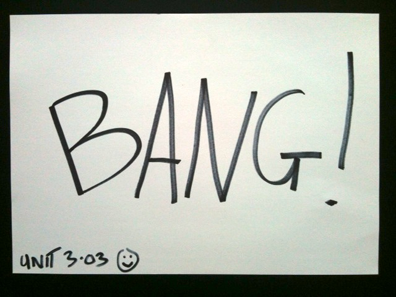 BANG!
UNIT 3.03